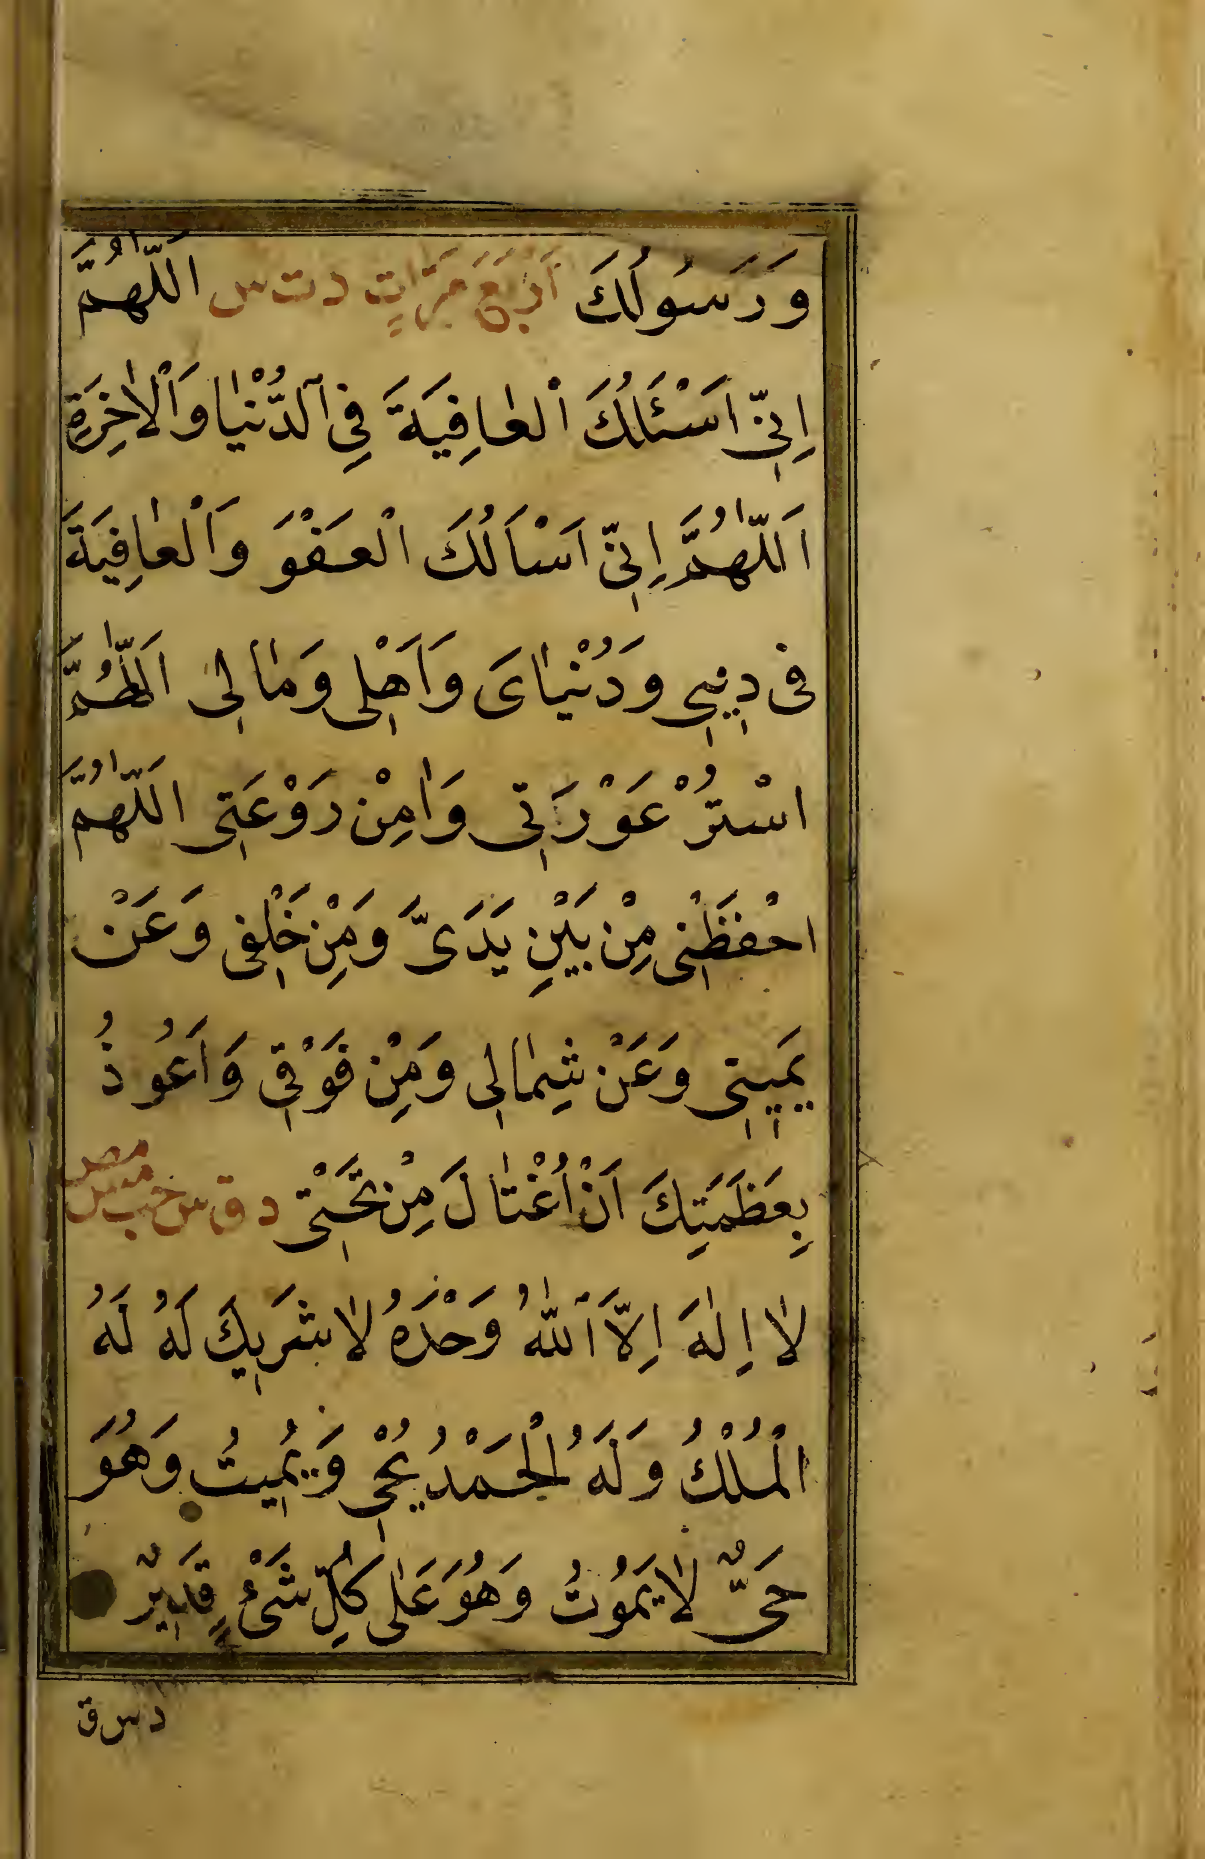 وَرَسُولُكَ اَرْبَعَ مَرَّاتٍ د ت س اَللّٰهُمَّ
اِنِّى اَسْئَلُكَ الْعَافِيَةَ فِى الدُّنْيَا وَالْاٰخِرَةِ
اَللّٰهُمَّ اِنِّى اَسْاَلُكَ الْعَفْوَ وَالْعَافِيَةَ
فى دِينِى وَدُنْيَاىَ وَاَهْلِى وَمَالِى اَللّٰهُمَّ
اسْتُرْ عَوْرَاتِى وَاٰمِنْ رَوْعَتِى اَللّٰهُمَّ
احْفَظْنِى مِنْ بَيْنِ يَدَىَّ وَمِنْ خَلْفِى وَعَنْ
يَمِينِى وَعَنْ شِمَالِى وَمِنْ فَوْقِى وَاَعُوذُ
بِعَظَمَتِكَ اَنْ اُغْتَالَ مِنْ تَحْتِى د ق س حب مس مص
لَا اِلٰهَ اِلَّا اللّٰهُ وَحْدَهُ لَا شَرِيكَ لَهُ لَهُ
الْمُلْكُ وَلَهُ الْحَمْدُ يُحْىِ وَيُمِيتُ وَهُوَ
حَىٌّ لَا يَمُوتُ وَهُوَ عَلٰى كُلِّ شَىْءٍ قَدِيرٌ
د س ق